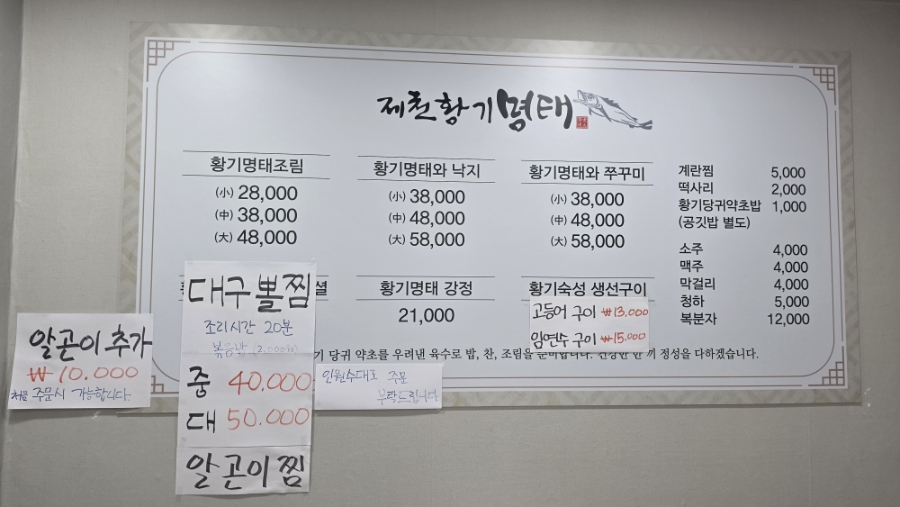 제천황기명태
황기명태조림
(小) 28,000
(中) 38,000
(大) 48,000
황기명태와 낙지
(小) 38,000
(中) 48,000
(大) 58,000
황기명태와 쭈꾸미
(小) 38,000
(中) 48,000
(大) 58,000
계란찜 5,000
떡사리 2,000
황기당귀약초밥 1,000
(공깃밥 별도)
소주 4,000
맥주 4,000
막걸리 4,000
청하 5,000
복분자 12,000
황기명태 강정
21,000
황기숙성 생선구이
고등어 구이 ₩13.000
임연수 구이 ₩15.000
당귀 약초를 우려낸 육수로 밥, 찬, 조림을 준비합니다. 건강한 한 끼 정성을 다하겠습니다.
대구뽈찜
조리시간 20분
볶음밥 (2.000원)
중 40.000
대 50.000
알곤이찜
알곤이 추가
₩10.000
처음 주문시 가능합니다.
인원수대로 주문
부탁드립니다